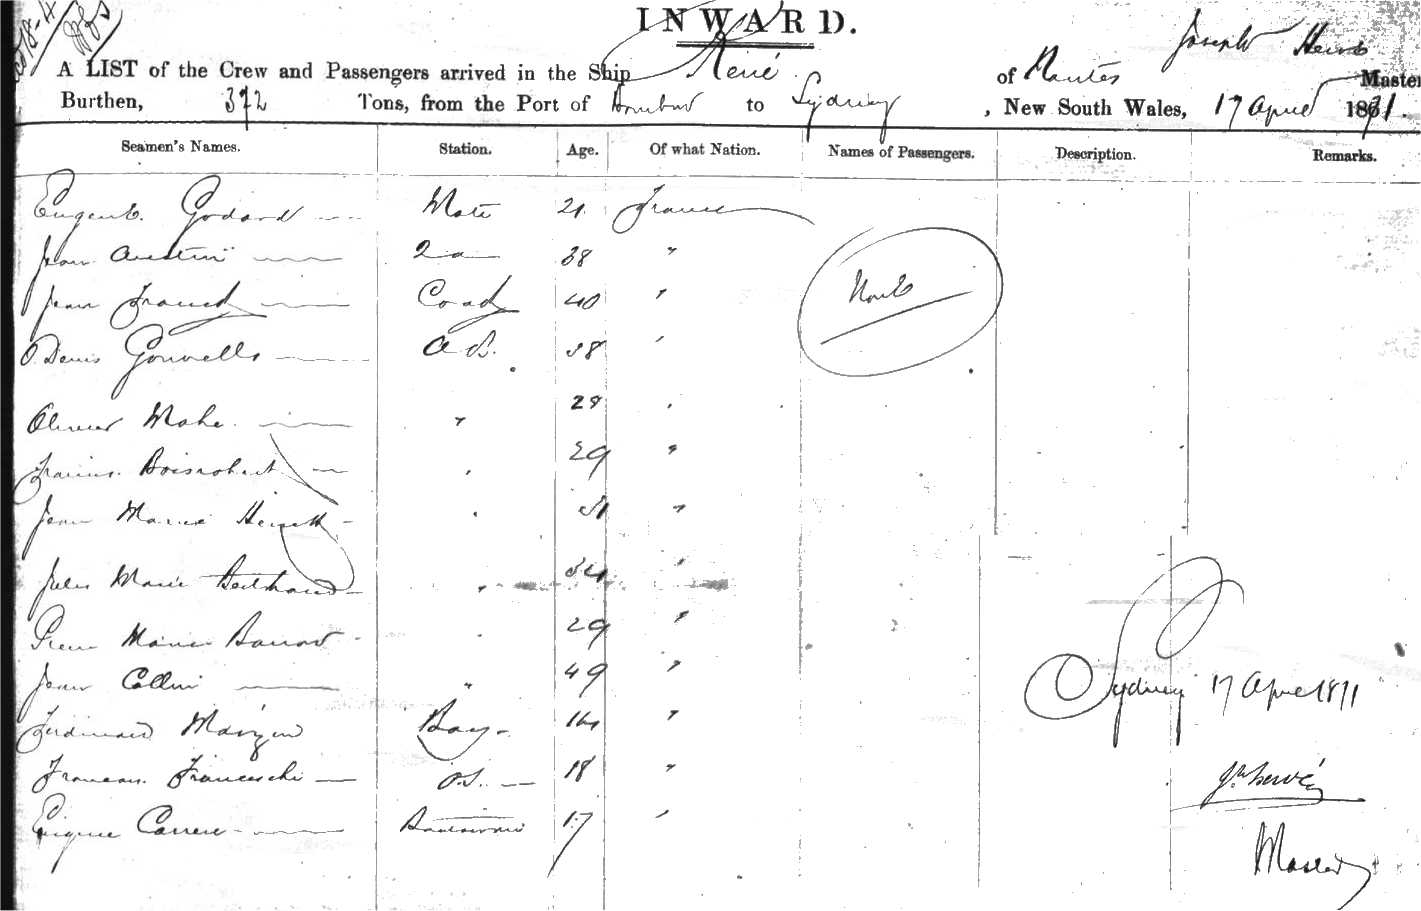 INWARD.
Joseph Herve
A LIST of the Crew and Passengers arrived in the Ship René of Nantes Master
Burthen, 372 Tons, from the Port of to Sydney, New South Wales, 17 April 1871.
Seamen's Names. Station. Age. Of what Nation. Names of Passengers. Description. Remarks.
Eugene Godard Mate 21 France
Jean Austin 2d 38 "
None
Jean Franck Cook 40 "
Denis Gourvello A.B. 38 "
Olivier Mahe " 28 "
Francois Boisrobert " 29 "
Jean Marie " 31 "
Jules Marie Berthaud " 34 "
Pierre Marie " 29 "
Jean Collin " 49 "
Sydney 17 April 1871
Ferdinand Boy 16 "
Francois Franceschi O.S. 18 "
Jh Hervé
Eugene Carrere 17 "
Master